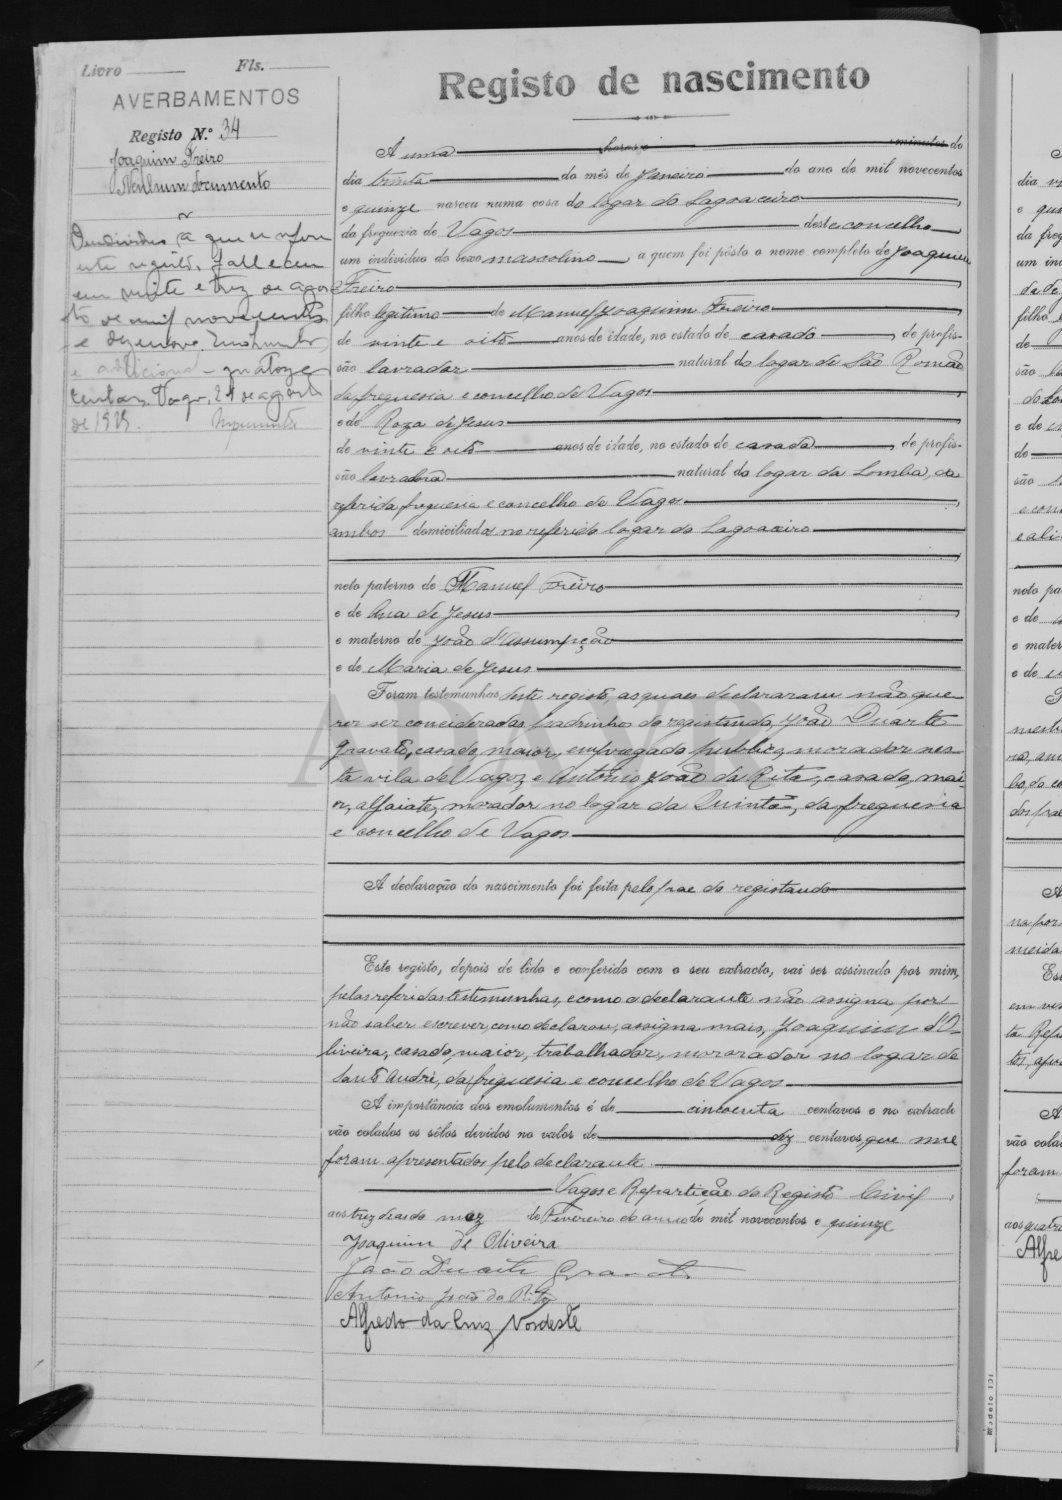 Livro Fls.
AVERBAMENTOS
Registo N.º 34
Joaquim Freiro
Nenhum documento
O individuo a que se refere
este registo, falleceu
em vinte e trez de agos
to de mil novecentos
e dezenove.
e adicional - quatorze
centavos. Vagos, 24 de agosto
de 1919.
Registo de nascimento
A uma horas e minutos do
dia trinta do mês de Janeiro do ano de mil novecentos
e quinze nasceu numa casa do logar do Lagoaceiro
da freguesia de Vagos deste concelho
um individuo do sexo masculino a quem foi pôsto o nome completo de Joaquim
Freiro
filho legitimo de Manuel Joaquim Freiro
de vinte e oito anos de idade, no estado de casado, de profis-
são lavrador natural do logar de São Romão
da freguesia e concelho de Vagos
e de Roza de Jesus
de vinte e oito anos de idade, no estado de casada, de profis-
são lavradora natural do logar da Lomba, da
referida freguesia e concelho de Vagos
ambos domiciliados no referido logar do Lagoaceiro
neto paterno de Manuel Freiro
e de Ana de Jesus
e materno de João d'Assumpção
e de Maria de Jesus
Foram testemunhas deste registo, as quaes declararam não que
rer ser consideradas padrinho do registando, João Duarte
Gravato, casado, maior, empregado publico, morador nes-
ta vila de Vagos, e António João da Rita, casado, mai-
or, alfaiate, morador no logar da Quintã, da freguesia
e concelho de Vagos
A declaração do nascimento foi feita pelo pae do registando
Este registo, depois de lido e conferido com o seu extracto, vai ser assinado por mim,
pelas referidas testemunhas, e como o declarante não assigna por
não saber escrever, como declarou, assigna mais, Joaquim d'O-
liveira, casado, maior, trabalhador, morarador no logar de
Santo André, da freguesia e concelho de Vagos
A importância dos emolumentos é de cincoenta centavos e no extracto
vão colados os sêlos devidos no valor de dez centavos, que me
foram apresentados pelo declarante.
Vagos e Repartição do Registo Civil,
aos trez dias do mez de Fevereiro do anno de mil novecentos e quinze
Joaquim de Oliveira
João Duarte Gravato
Antonio João da Rita
Alfredo da Cruz Nordeste